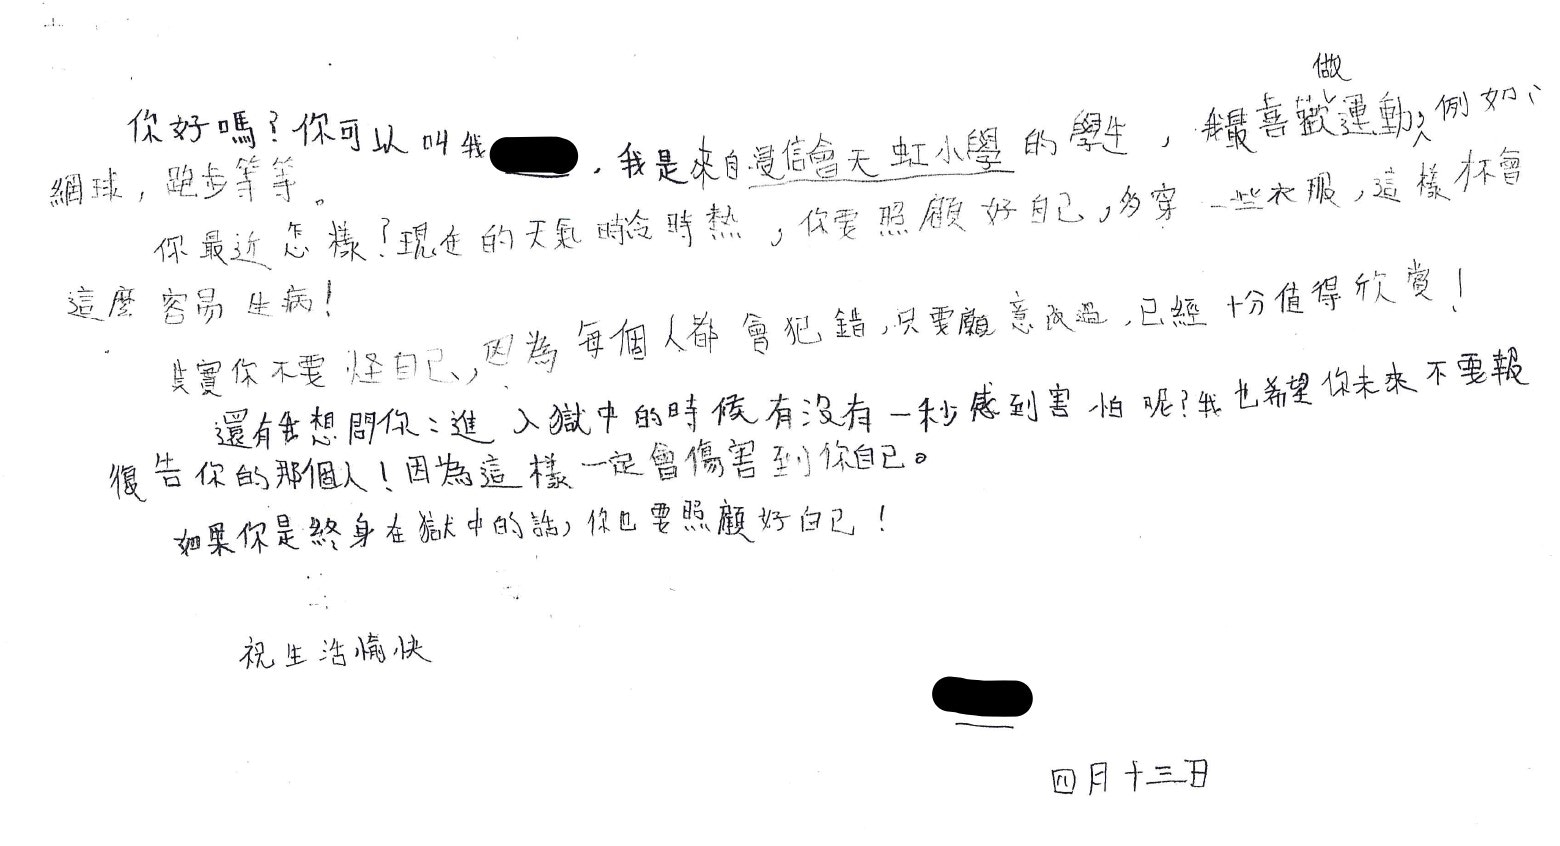 你好嗎？你可以叫我，我是來自浸信會天虹小學的學生，我最喜歡做運動，例如：
網球，跑步等等。
你最近怎樣？現在的天氣時冷時熱，你要照顧好自己，多穿一些衣服，這樣不會
這麼容易生病！
其實你不要怪自己，因為每個人都會犯錯，只要願意改過，已經十分值得欣賞！
還有我想問你：進入獄中的時候有没有一秒感到害怕呢？我也希望你未來不要報
復告你的那個人！因為這樣一定會傷害到你自己。
如果你是終身在獄中的話，你也要照顧好自己！
祝生活愉快
四月十三日